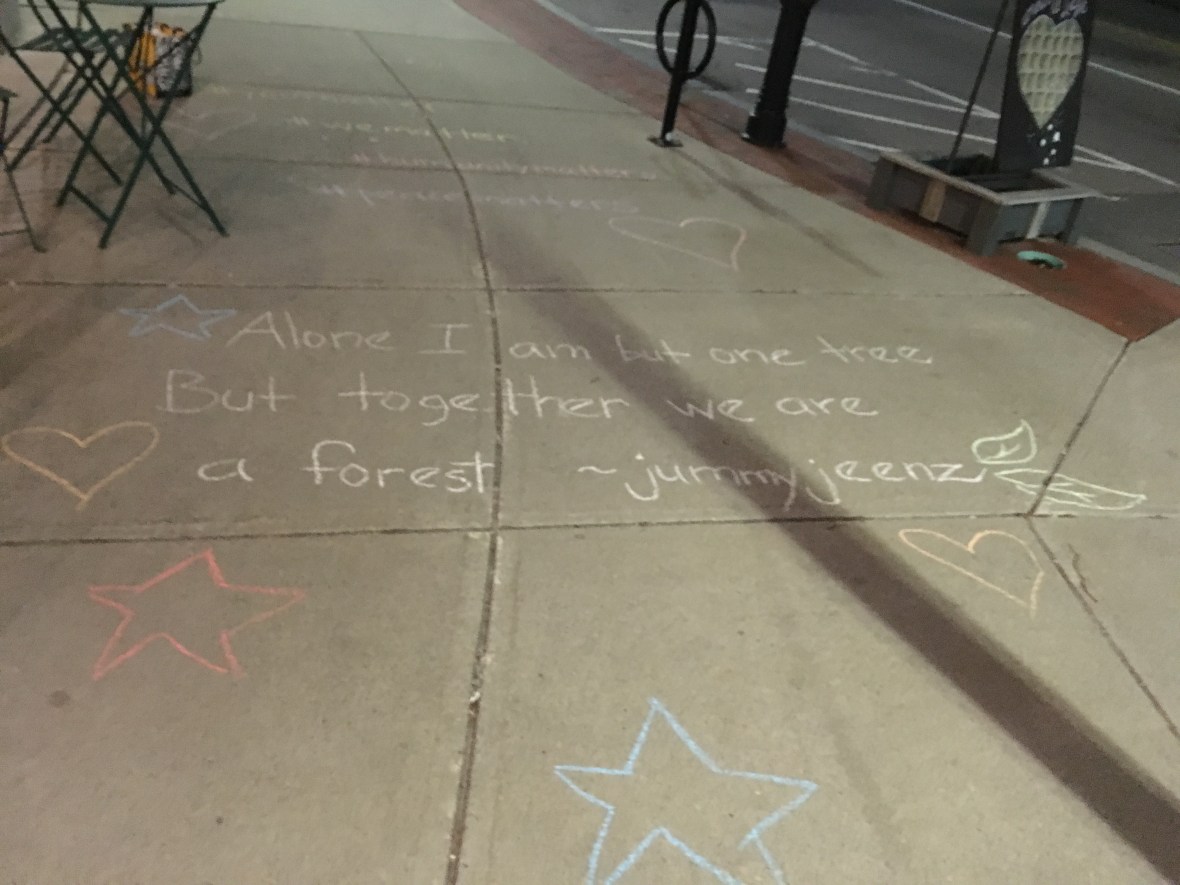 #wematter
#humanitymatters
#peacematters
Alone I am but one tree
But together we are
a forest ~jummyjeenz